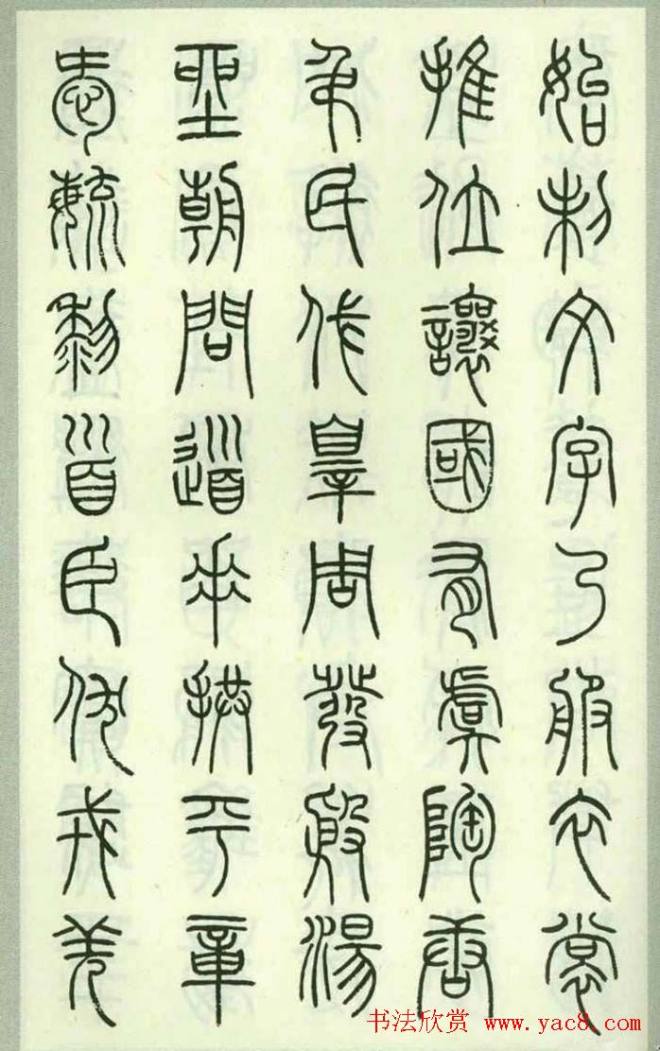 始制文字乃服衣裳
推位讓國有虞陶唐
弔民伐辠周發殷湯
坐朝問道垂拱平章
愛毓黎首臣伏戎羌
书法欣赏 www.yac8.com